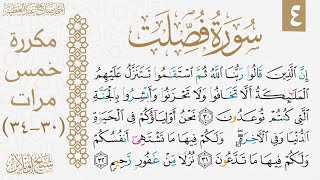 ٤
سُورَةُ فُصِّلَتْ
مكررة
خمس
مرات
(٣٠-٣٤)
إِنَّ ٱلَّذِينَ قَالُوا۟ رَبُّنَا ٱللَّهُ ثُمَّ ٱسْتَقَٰمُوا۟ تَتَنَزَّلُ عَلَيْهِمُ
ٱلْمَلَٰٓئِكَةُ أَلَّا تَخَافُوا۟ وَلَا تَحْزَنُوا۟ وَأَبْشِرُوا۟ بِٱلْجَنَّةِ
ٱلَّتِى كُنتُمْ تُوعَدُونَ ٣٠ نَحْنُ أَوْلِيَآؤُكُمْ فِى ٱلْحَيَوٰةِ
ٱلدُّنْيَا وَفِى ٱلْءَاخِرَةِ وَلَكُمْ فِيهَا مَا تَشْتَهِىٓ أَنفُسُكُمْ
وَلَكُمْ فِيهَا مَا تَدَّعُونَ ٣١ نُزُلًا مِّنْ غَفُورٍ رَّحِيمٍ ٣٢